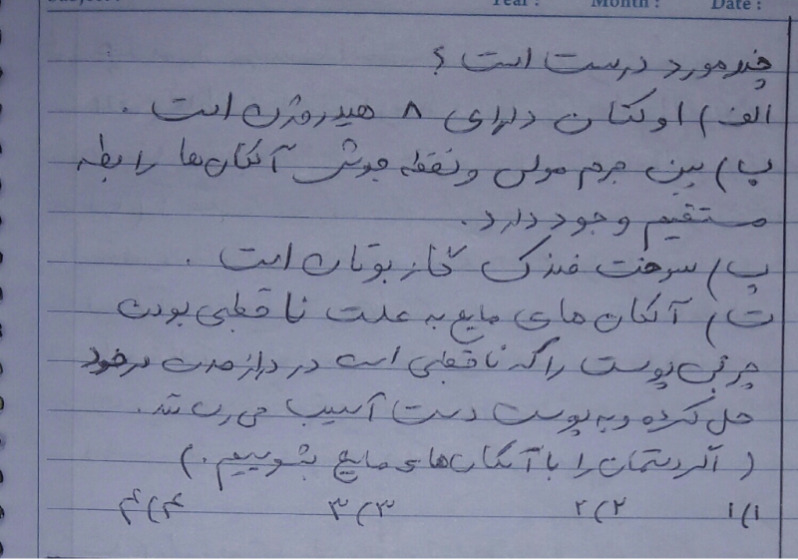 Year : Month : Date :
چند مورد درست است ؟
الف) اوکتان دارای ۸ هیدروژن است .
ب) بین جرم مولی و نقطه جوش آلکان‌ها رابطه
مستقیم وجود دارد .
پ) سوخت فندک گاز بوتان است .
ت) آلکان های مایع به علت ناقطبی بودن
چربی پوست را که ناقطبی است در دراز مدت در خود
حل کرده و به پوست دست آسیب می رسانند .
( اگر دستمان را با آلکان‌های مایع بشوییم . )
۱) ۱ ۲) ۲ ۳) ۳ ۴) ۴